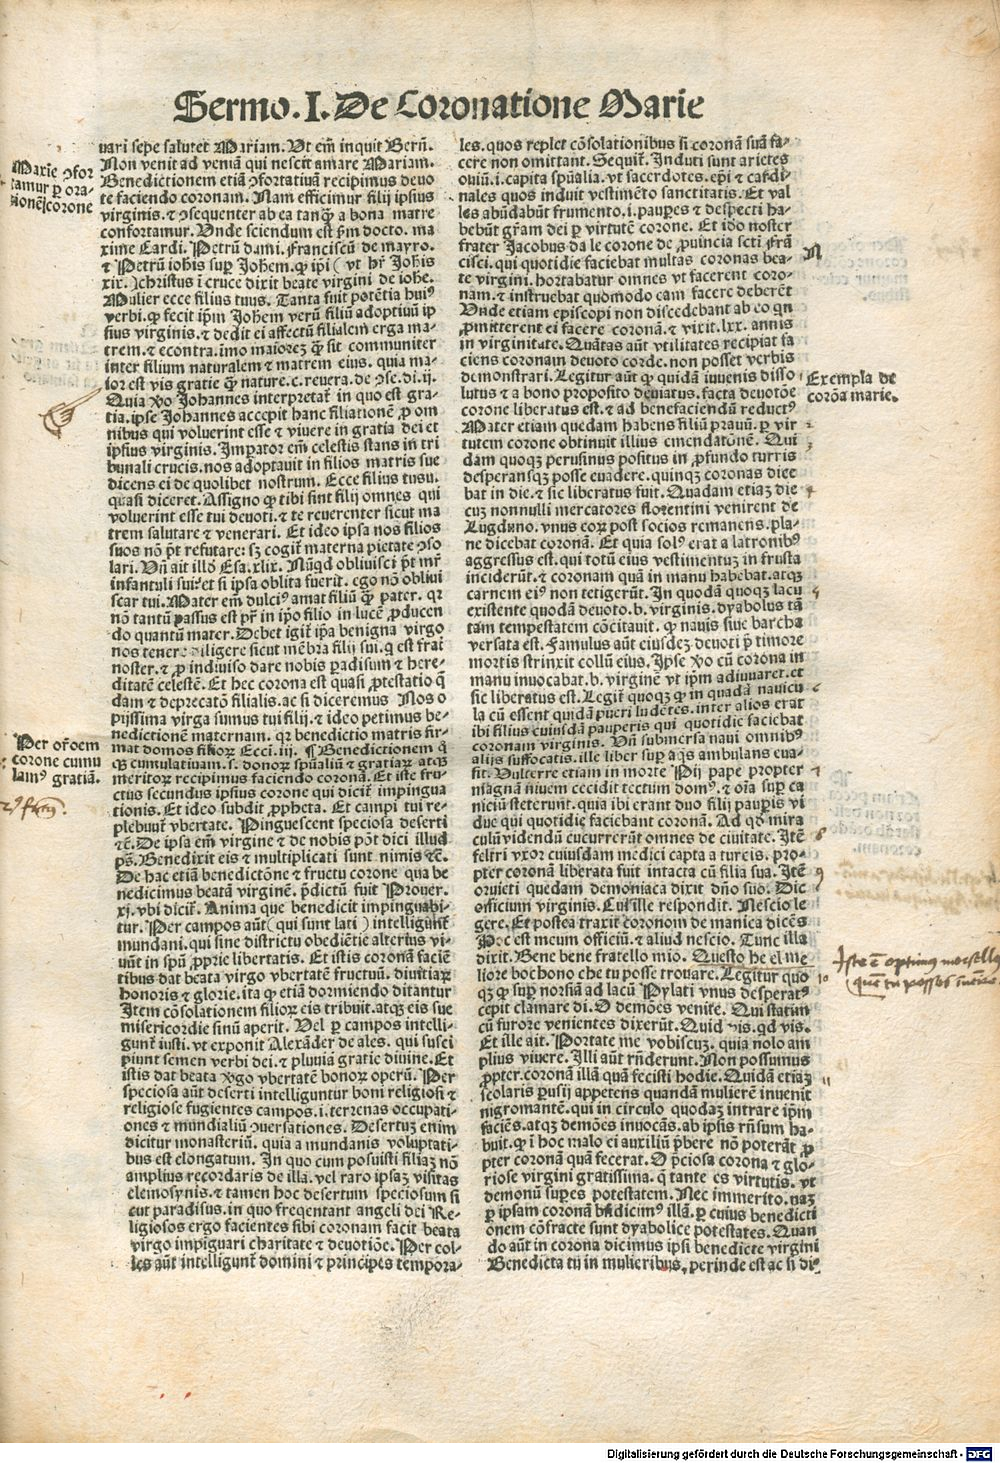 Sermo. I. De Coronatione Marie
uari sepe salutet Mariam. Ut em̄ inquit Berñ.
Non venit ad veniā qui nescit amare Mariam.
Marie ꝯfor
tamur ꝑ ora-
tionē corone
Benedictionem etiā ꝯfortatiuā recipimus deuo
te faciendo coronam. Nam efficimur filij ipsius
virginis. ⁊ ꝯsequenter ab ea tanꝗ̃ a bona matre
confortamur. Unde sciendum est ẜm docto. ma
xime Cardi. Petrū dami. Franciscū de mayro.
⁊ Petrū iohis suꝑ Johem. ꝙ ip̄i (vt hr̄ Johis
xix. Christus ī cruce dixit beate virgini de iohe.
Mulier ecce filius tuus. Tanta fuit potētia huiꝰ
verbi. ꝙ fecit ip̄m Johem verū filiū adoptiuū ip
sius virginis. ⁊ dedit ei affectū filialem erga ma-
trem. ⁊ econtra. imo maiorez ꝙ̄ sit communiter
inter filium naturalem ⁊ matrem eius. quia ma-
ior est vis gratie ꝙ̄ nature. c. reuera. de ꝯse. di. ij.
Quia v̄o Johannes interpretat̄ in quo est gra-
tia. ipse Johannes accepit hanc filiationē ꝓ om
nibus qui voluerint esse ⁊ viuere in gratia dei et
ipsius virginis. Imꝑator em̄ celestis stans in tri
bunali crucis. nos adoptauit in filios matris sue
dicens ei de quolibet nostrum. Ecce filius tuus.
quasi diceret. Assigno ꝙ tibi sint filij omnes qui
voluerint esse tui deuoti. ⁊ te reuerenter sicut ma
trem salutare ⁊ venerari. Et ideo ipsa nos filios
suos nō p̄t refutare: sꝫ cogit̄ materna pietate ꝯso
lari. Uñ ait illō Esa. xlix. Nūꝗd obliuisci p̄t mr̄
infantuli sui: et si ipsa oblita fuerit. ego nō obliui
scar tui. Mater em̄ dulciꝰ amat filiū ꝙ̄ pater. qꝛ
nō tantū passus est pr̄ in ip̄o filio in lucē ꝓducen
do quantū mater. Debet igit̄ ip̄a benigna virgo
nos tenere diligere sicut mēbra filij sui. q est frat̄
noster. ⁊ ꝓ indiuiso dare nobis ꝑadisum ⁊ here-
ditatē celestē. Et hec corona est quasi ꝓtestatio q̄
dam ⁊ deprecatō filialis. ac si diceremus Nos o
pijssima virgo sumus tui filij. ⁊ ideo petimus be-
nedictionem maternam. qꝛ benedictio matris fir-
Per or̄oem
corone cumu
lamꝰ gratiā.
mat domos filioꝝ Ecci. iij. ¶ Benedictionem q̄
ꝗꝫ cumulatiuam. s. donoꝝ spūaliū ⁊ gratiaꝝ atqꝫ
meritoꝝ recipimus faciendo coronā. Et iste fru-
ctus secundus ipsius corone qui dicit̄ impingua
tionis. Et ideo subdit ꝓpheta. Et campi tui re-
plebunt̄ vbertate. Pinguescent speciosa deserti
⁊c̄. De ipsa em̄ virgine ⁊ de nobis pōt dici illud
ps̄. Benedixit eis ⁊ multiplicati sunt nimis ⁊c̄.
De hac etiā benedictōne ⁊ fructu corone qua be
nedicimus beatā virginē. p̄dictū fuit Prouer.
xj. vbi dicit̄. Anima que benedicit impinguabi-
tur. Per campos aūt (qui sunt lati) intelligunt̄
mundani. qui sine districtu obediētie alterius vi-
uunt in spū ꝓprie libertatis. Et istis coronā faciē
tibus dat beata virgo vbertatē fructuū. diuitiaꝝ
honoris ⁊ glorie. ita ꝙ etiā dormiendo ditantur
Item cōsolationem filioꝝ eis tribuit. atqꝫ eis sue
misericordie sinū aperit. Uel ꝑ campos intelli-
gunt̄ iusti. vt exponit Alexāder de ales. qui susci
piunt semen verbi dei. ⁊ pluuiā gratie diuine. Et
istis dat beata v̄go vbertatē bonoꝝ operū. Per
speciosa aūt deserti intelliguntur boni religiosi ⁊
religiose fugientes campos. i. terrenas occupati-
ones ⁊ mundialiū ꝯuersationes. Desertuꝫ enim
dicitur monasteriū. quia a mundanis voluptati-
bus est elongatum. In quo cum posuisti filiaꝫ nō
amplius recordaris de illa. vel raro ipsaꝫ visitas
elemosynis. ⁊ tamen hoc desertum speciosum si
cut paradisus. in quo freqentant angeli dei Re-
ligiosos ergo facientes sibi coronam facit beata
virgo impīguari charitate ⁊ deuotiōe. Per col-
les aūt intelligunt̄ domini ⁊ principes tempora-
les. quos replet cōsolationibus si coronā suā fa-
cere non omittant. Sequit̄. Induti sunt arietes
ouiū. i. capita spūalia. vt sacerdotes. ep̄i ⁊ cardi-
nales quos induit vestimēto sanctitatis. Et val
les abūdabūt frumento. i. pauꝑes ⁊ despecti ha-
bebūt gr̄am dei ꝑ virtutē corone. Et ido noster
frater Jacobus da le corone de ꝓuincia scti Frā
cisci. qui quotidie faciebat multas coronas bea-
te virgini. hortabatur omnes vt facerent coro-
nam. ⁊ instruebat quōmodo eam facere deberēt
Unde etiam episcopi non discedebant ab eo qn̄
ꝓmitterent ei facere coronā. ⁊ vixit. lxx. annis
in virginitate. Quātas aūt vtilitates recipiat fa
ciens coronam deuoto corde. non posset verbis
Exempla de
corōa marie.
demonstrari. Legitur aūt ꝙ quidā iuuenis disso
lutus ⁊ a bono proposito deuiatus. facta deuotōe
corone liberatus est. ⁊ ad benefaciendū reductꝰ
Mater etiam quedam habens filiū prauū. ꝑ vir
tutem corone obtinuit illius emendatōnē. Qui
dam quoqꝫ perusinus positus in ꝓfundo turris
desperansqꝫ posse euadere. quinqꝫ coronas dice
bat in die. ⁊ sic liberatus fuit. Quadam etiaꝫ die
cuꝫ nonnulli mercatores florentini venirent de
Lugduno. vnus eoꝝ post socios remanens. pla-
ne dicebat coronā. Et quia solꝰ erat a latronibꝰ
aggressus est. qui totū eius vestimentuꝫ in frusta
inciderūt. ⁊ coronam quā in manu habebat. atqꝫ
carnem eiꝰ non tetigerūt. In quodā quoqꝫ lacu
existente quodā deuoto. b. virginis. dyabolus tā
tam tempestatem cōcitauit. ꝙ nauis siue barcha
versata est. Famulus aūt eiusdeꝫ deuoti p̄ timore
mortis strinxit collū eius. Ipse v̄o cū corona in
manu inuocabat. b. virginē vt ip̄m adiuuaret. et
sic liberatus est. Legit̄ quoqꝫ ꝙ in quadā nauicu
la cū essent quidā pueri ludētes. inter alios erat
ibi filius cuiusdā pauperis qui quotidie faciebat
coronam virginis. Uñ submersa naui omnibꝰ
alijs suffocatis. ille liber suꝑ aq̄s ambulans eua-
sit. Uulterre etiam in morte Pij pape propter
magnā niuem cecidit tectum domꝰ. ⁊ oīa suꝑ ca
niciū steterunt. quia ibi erant duo filij pauꝑis vi
due qui quotidie faciebant coronā. Ad qō mira
culū videndū cucurrerūt omnes de ciuitate. Itē
feltri vxor cuiusdam medici capta a turcis. pro-
pter coronā liberata fuit intacta cū filia sua. Itē
oruieti quedam demoniaca dixit dn̄o suo. Dic
officium virginis. Cui ille respondit. Nescio le
gere. Et postea traxit coronom de manica dicēs
Hoc est meum officiū. ⁊ aliud nescio. Tunc illa
dixit. Bene bene fratello mio. Questo he el me
liore bochono che tu posse trouare. Legitur quo
Iste ē optimus morsellus
quē tu posses inuenire
qꝫ ꝙ suꝑ norsiā ad lacū Pylati vnus desperatꝰ
cepit clamare di. O demōes venite. Qui statim
cū furore venientes dixerūt. Quid vis. qd vis.
Et ille ait. Portate me vobiscuꝫ. quia nolo am
plius viuere. Illi aūt rn̄derunt. Non possumus
ꝓpter. coronā illā quā fecisti hodie. Quidā etiaꝫ
scolaris ꝑusij appetens quandā mulierē inuenit
nigromantē. qui in circulo quodaꝫ intrare ip̄m
faciēs. atqꝫ demōes inuocās. ab ipsis rn̄sum ha-
buit. ꝙ ī hoc malo ei auxiliū p̄bere nō poterāt ꝓ
pter coronā quā fecerat. O p̄ciosa corona ⁊ glo-
riose virgini gratissima. q̄ tante es virtutis. vt
demonū suꝑes potestatem. Nec immerito. naꝫ
ꝑ ipsam coronā bn̄dicimꝰ illā. ꝑ cuius benedicti
onem cōfracte sunt dyabolice potestates. Quan
do aūt in corona dicimus ipsi benedicte virgini
Benedicta tu in mulieribus. perinde est ac si di-
Digitalisierung gefördert durch die Deutsche Forschungsgemeinschaft - DFG